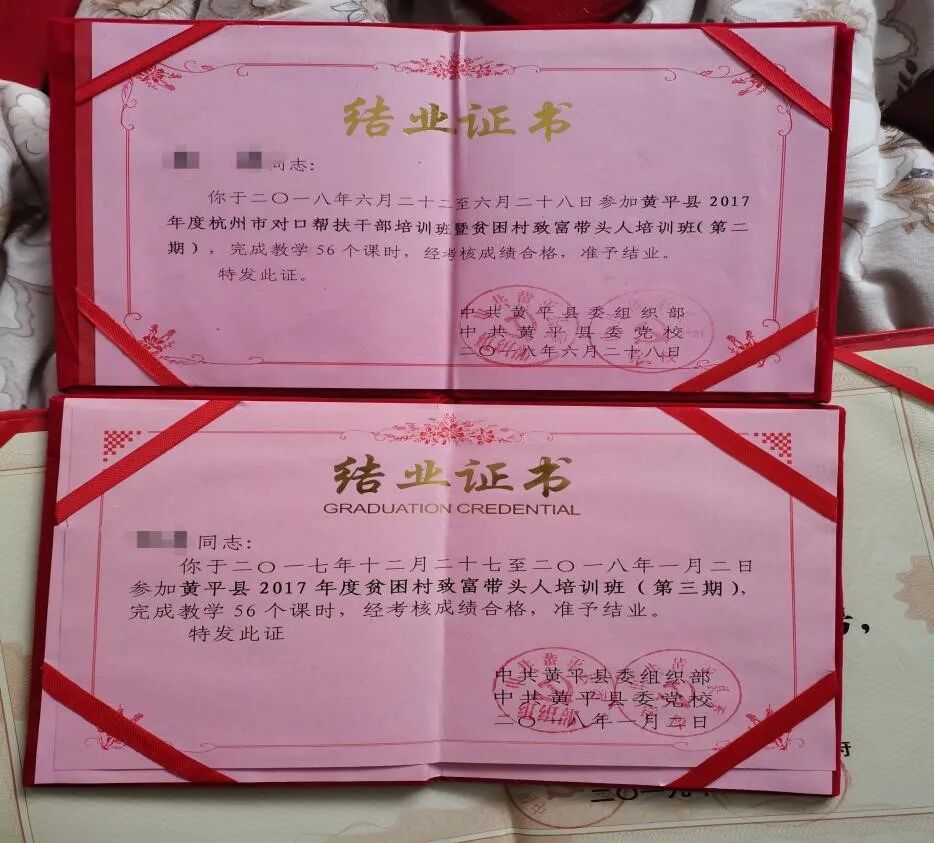 结业证书
同志:
你于二〇一八年六月二十二至六月二十八日参加黄平县2017
年度杭州市对口帮扶干部培训班暨贫困村致富带头人培训班(第二
期),完成教学56个课时,经考核成绩合格,准予结业。
特发此证。
中共黄平县委组织部
中共黄平县委党校
二〇一八年六月二十八日
结业证书
GRADUATION CREDENTIAL
同志:
你于二〇一七年十二月二十七至二〇一八年一月二日
参加黄平县2017年度贫困村致富带头人培训班(第三期),
完成教学56个课时,经考核成绩合格,准予结业。
特发此证
中共黄平县委组织部
中共黄平县委党校
二〇一八年一月二日
二〇一九年